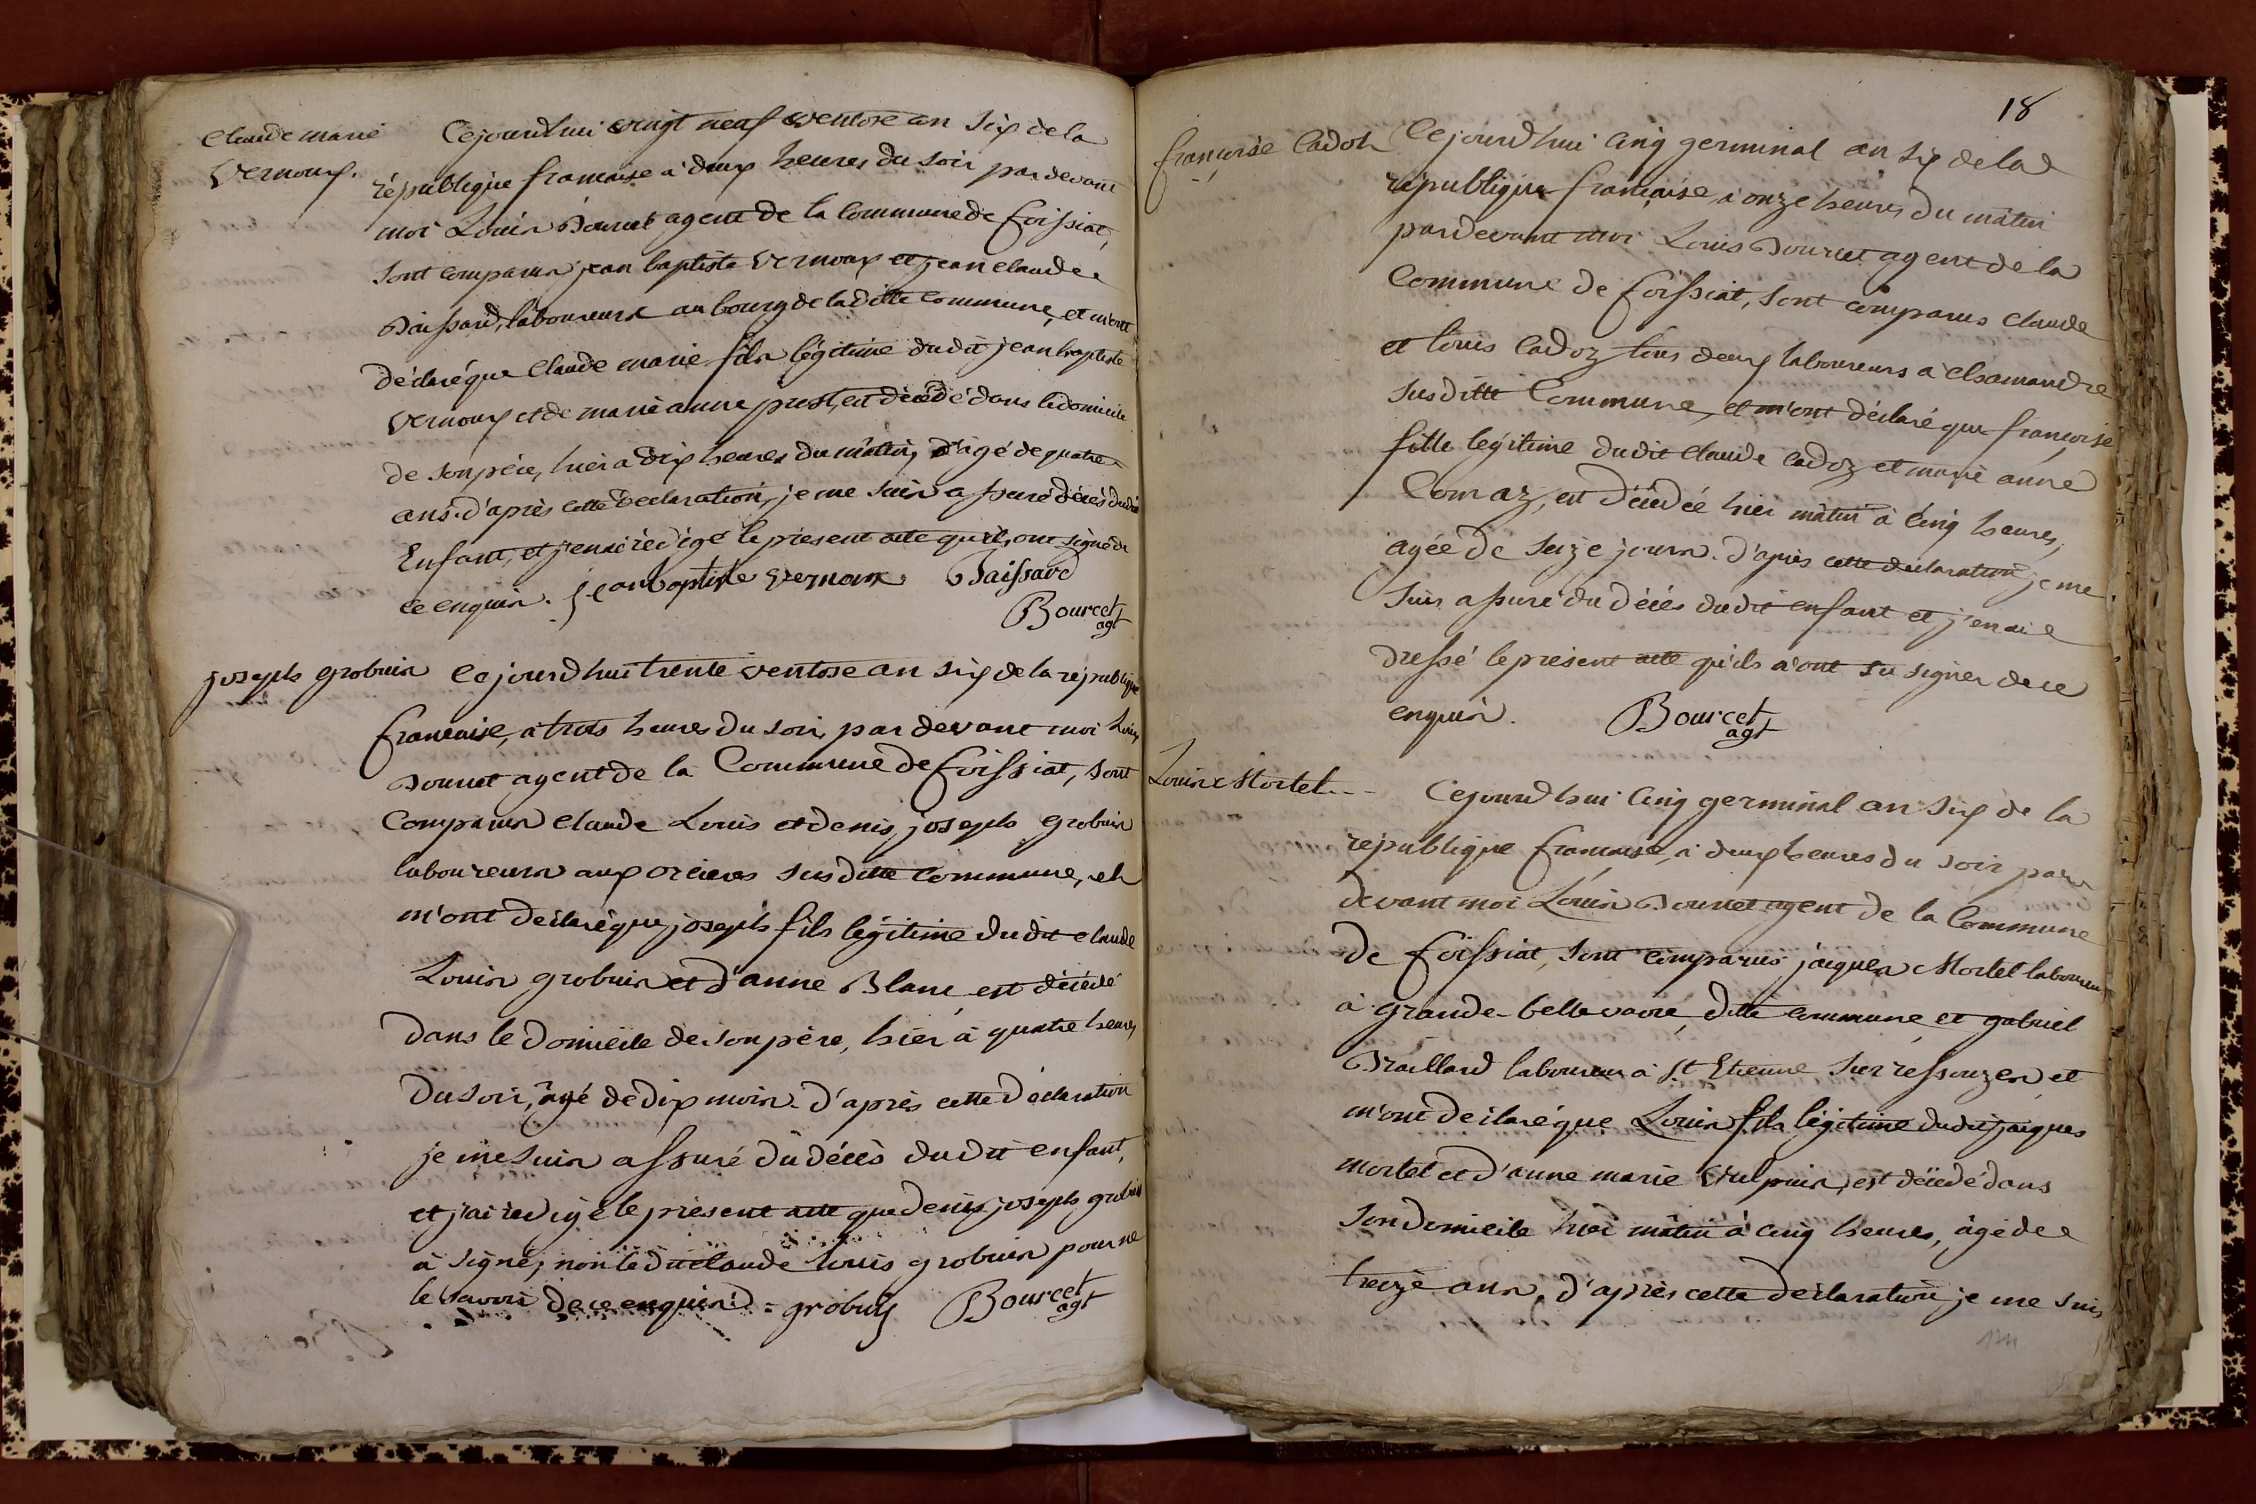 Claude marie
Vernoux.
Cejourdhui vingt neuf ventose an six de la
république francaise a deux heures du soir pardevant
moi Louis Bourcet agent de la Commune de foissiat,
sont comparus jean baptiste Vernoux et jean claude
Baissard, laboureurs au bourg de la ditte commune, et m'ont
déclaré que Claude marie fils légitime dudit jean baptiste
Vernoux et de marie anne prost, est décédé dans le domicile
de son père, hier a dix heures du matin, agé de quatre
ans. d'après cette declaration, je me suis assuré décès dudit
Enfant, et j'en ai rédigé le présent acte qu'ils ont signé de
ce enquis. jean baptiste vernoux Baissard
Bourcet
agt
joseph grobuis
Cejourdhui trente ventose an six de la république
francaise, a trois heures du soir, pardevant moi Louis
Bourcet agent de la Commune de foissiat, sont
Comparus claude Louis et denis joseph grobuis
laboureurs aux orcieres susditte commune, et
m'ont declaré que joseph fils légitime dudit claude
Louis grobuis et d'anne Blanc est décédé
dans le domicile de son père, hier à quatre heures
du soir, âgé de dix mois. d'après cette déclaration
je me suis assuré du décès dudit enfant,
et j'ai redigé le présent acte que denis joseph grobuis
à signé, non ledit claude louis grobuis pour ne
le savoir de ce enquis. grobuis Bourcet
agt
18
françoise Cadoz
Cejourdhui cinq germinal an six de la
république française, a onze heures du matin
pardevant moi Louis Bourcet agent de la
Commune de foissiat, sont comparus claude
et louis Cadoz tous deux laboureurs a chamandre
susditte Commune, et m'ont déclaré que françoise
fille légitime dudit claude cadoz et marie anne
Comaz, est décédée hier matin à cinq heures,
agée de seize jours. d'après cette declaration je me
suis assuré du décès dudit enfant et j'en ai
dressé le présent acte qu'ils n'ont su signer de ce
enquis. Bourcet
agt
Louis Mortel
Cejourdhui cinq germinal an six de la
republique francaise, a deux heures du soir par
devant moi Louis Bourcet agent de la Commune
de foissiat, sont comparus jacques Mortel laboureur
à grande-bellevavre, ditte commune et gabriel
Braillard laboureur à St Etienne sur ressouze et
m'ont declaré que Louis fils légitime dudit jacques
mortel et d'anne marie Vulpuis, est décédé dans
son domicile hier matin à cinq heures, âgé de
treize ans. d'après cette déclaration je me suis